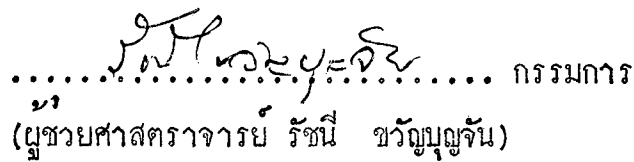 .................................. กรรมการ
(ผู้ช่วยศาสตราจารย์ รัชนี ขวัญบุญจัน)